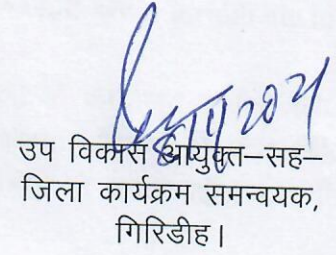 उप विकास आयुक्त–सह–
जिला कार्यक्रम समन्वयक,
गिरिडीह।